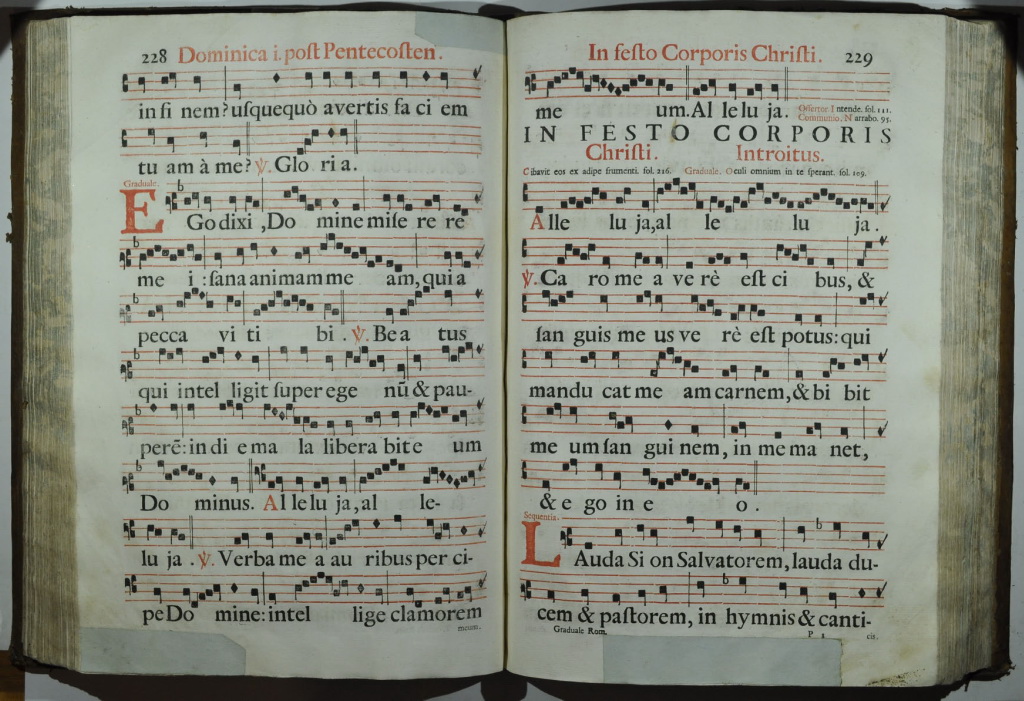 228 Dominica i. poſt Pentecoſten.
in fi nem? uſquequò avertis fa ci em
tu am à me? ℣. Glo ri a.
Graduale.
EGo dixi , Do mine miſe re re
me i : ſana animam me am, qui a
pecca vi ti bi . ℣. Be a tus
qui intel ligit ſuper ege nũ & pau-
perẽ: in di e ma la libera bit e um
Do minus. Al le lu ja, al le-
lu ja . ℣. Verba me a au ribus per ci-
pe Do mine: intel lige clamorem
meum.
In feſto Corporis Chriſti. 229
me um. Al le lu ja. Offertor. Intende. fol. 111.
Communio. Narrabo. 95.
IN FESTO CORPORIS
Chriſti. Introitus.
Cibavit eos ex adipe frumenti. fol. 216. Graduale. Oculi omnium in te ſperant. fol. 109.
Alle lu ja, al le lu ja.
℣. Ca ro me a ve rè eſt ci bus, &
ſan guis me us ve rè eſt potus: qui
mandu cat me am carnem, & bi bit
me um ſan gui nem, in me ma net,
& e go in e o.
Sequentia.
LAuda Si on Salvatorem, lauda du-
cem & paſtorem, in hymnis & canti-
Graduale Rom. P 2 cis.